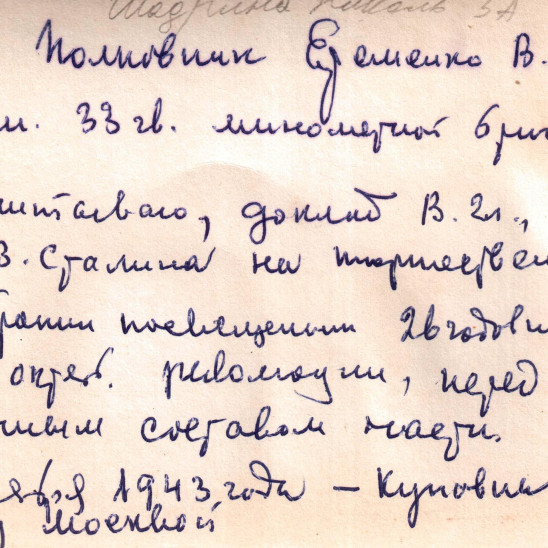 Шадрина Николь 3А
Полковник Еременко В.
м. 33 гв. минометной бриг
читаваю, доклад В. Гл.,
В. Сталина на торжествен
брании посвещеным 26 годовщ
октяб. революции, перед
чным составом части.
ября 1943 года – Купавна
Москвой